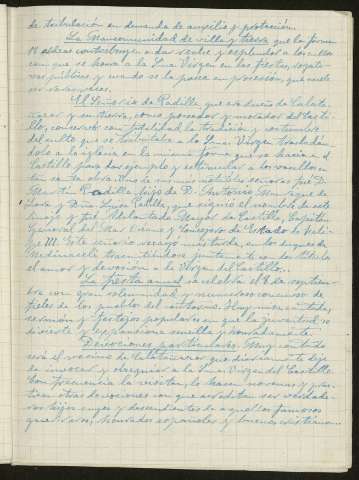 de tribulación en demanda de auxilio y protección.
La Mancomunidad de villa y tierra que la forman
11 aldeas contribuyen a dar realce y esplendor a los cultos
con que se honra a la Sma. Virgen en las fiestas, rogati-
vas públicas y cuando se la pasea en procesión, que suele
ser varias veces.
El Señorío de Padilla que era dueño de Calata-
ñazor y su tierra, como poseedor y morador del Casti-
llo, conservó con fidelidad la tradición y costumbre
del culto que se tributaba a la Sma. Virgen trasladán-
dolo a la iglesia en la misma forma que se hacía en el
Castillo para dar ejemplo y estimular a los vasallos en
tan santa obra. Uno de los más notables señores fué D.
Martín Padilla hijo de D. Antonio Manrique de
Lara y Dña Luisa Padilla, que siguió el nombre de este
linaje y fué Adelantado Mayor de Castilla, Capitán
General del Mar Océano y Consejero de Estado de Feli-
pe III. Este señorío recayó más tarde, en los duques de
Medinaceli transmitiéndose juntamente con los títulos
el amor y devoción a la Virgen del Castillo.
La fiesta anual se celebra el 8 de septiem-
bre con gran solemnidad y numeroso concurso de
fieles de los pueblos del contorno. Hay misa cantada,
sermón y festejos populares en que la juventud se
divierte y expansiona sencilla y honradamente.
Devociones particulares. Muy contado
será el vecino de Calatañazor que diariamente deje
de invocar y obsequiar a la Sma. Virgen del Castillo.
Con frecuencia la visitan, la hacen novenas y prac-
tican otras devociones con que acreditan ser verdade-
ros hijos suyos y descendientes de aquellos famosos
guerreros, honrados españoles y buenos cristianos.